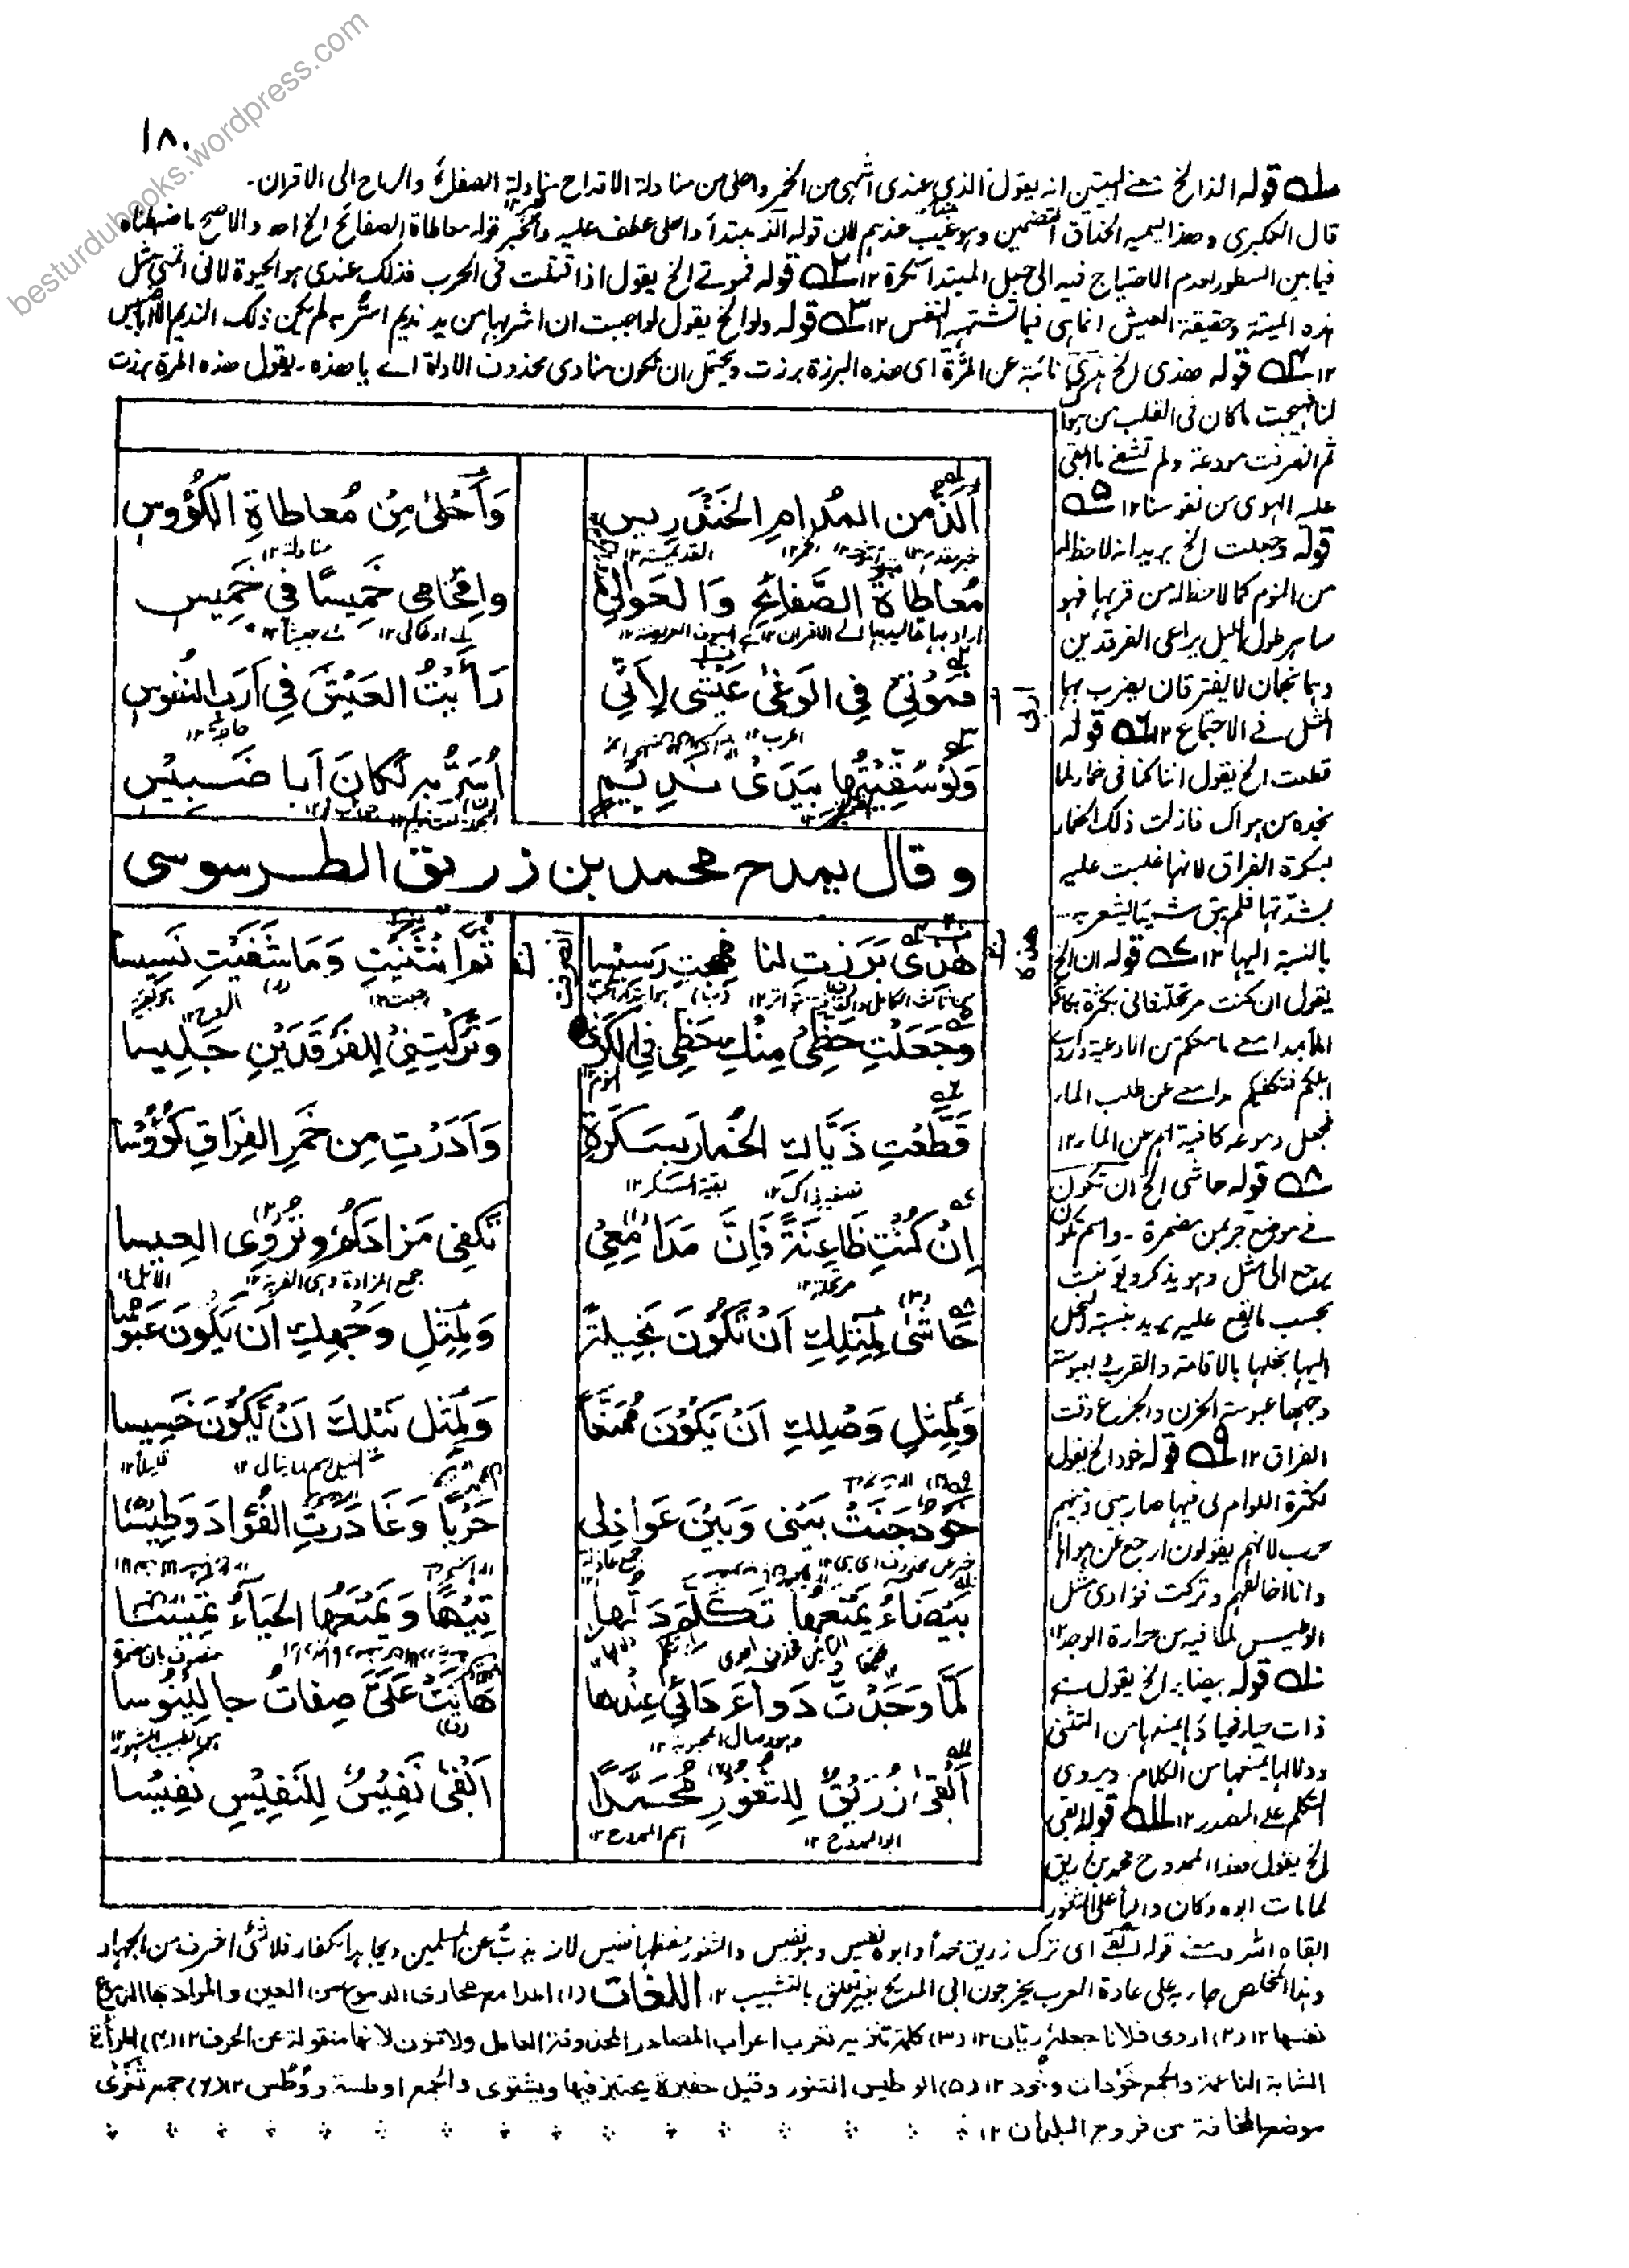 besturdubooks.wordpress.com
١٨٠
قوله الذ الخ البيتين انه يقول الذي عندى اشهى من الخمر واحلى من مناولة الاقداح مناولة الصفائح والرماح الى الاقران۔
قال العكبرى وهذا يسميه الحذاق التضمين وهو عيب عندهم لان قوله الذ مبتدأ واحلى عطف عليه والخبر قوله معاطاة الصفائح الخ اھ والاصح ما ضبطناه
فيما بين السطور لعدم الاحتياج فيه الى جعل المبتدا نكرة ١٢ ٢ قوله فموتى الخ يقول اذا قتلت فى الحرب فذلك عندى هو الحيوة لانى
هذه الميتة وحقيقة العيش انما هى فيما تشتهيه النفس ١٢ ٣ قوله ولو الخ يقول لو احببت ان اشربها من يد نديم اسر به لم يكن ذلك النديم الا
١٢ ٤ قوله هذى الخ نائبة عن المرة اى هذه البرزة برزت ويحتمل ان تكون منادى محذوف الاداة اے يا هذه۔ يقول هذه المرة برزت
لنا فهيجت ما كان فى القلب من هوا
ثم انصرفت مودعة ولم تشفى ما ابقى
عليه الهوى من نفوسنا ١٢ ٥
قوله وجعلت الخ يريد انه لا حظ له
من النوم كما لا حظ له من قربها فهو
ساهر طول الليل يراعى الفرقدين
وهما نجمان لا يفترقان يضرب بهما
المثل فى الاجتماع ١٢ ٦ قوله
قطعت الخ يقول اننا كنا فى خمار لما
نجده من هواك فازلت ذلك الخمار
بسكرة الفراق لانها غلبت عليه
بشدتها فلم يبق شيئا يشعر به
بالنسبة اليها ١٢ ٧ قوله ان الخ
يقول ان كنت مرتحلة فانى بكثرة بكائى
املأ بمدامعى ما معكم من الاوعية واروى
ابلكم فتكفيكم مدامعى عن طلب الماء
فجعل دموعه كافية لهم عن الماء ١٢
٨ قوله حاشى الخ ان تكون
فى موضع جر بمن مضمرة۔ واسم تكون
يرجع الى مثل وهو يذكر ويونث
بحسب ما يقع عليه يريد بنسبة البخل
اليها بخلها بالاقامة والقرب وبعبوسة
وجهها عبوسة الحزن والجزع وقت
الفراق ١٢ ٩ قوله خود الخ يقول
لكثرة اللوام لى فيها صار بينى وبينهم
حرب لانهم يقولون ارجع عن هواها
وانا اخالفهم وتركت فوادى مثل
الوطيس لما فيه من حرارة الوجد ١٢
١٠ قوله بيضاء الخ يقول هى
ذات حياء فحياؤها يمنعها من التثنى
ودلالها يمنعها من الكلام۔ ويروى
التكلم على المصدر ١٢ ١١ قوله ابقى
الخ يقول هذا الممدوح محمد بن زريق
لما مات ابوه وكان واليا على الثغور
اَلَذُّ مِنَ المُدَامِ الخَنْدَرِيسِ وَاَحْلىٰ مِنْ مُعاطاةِ الكُؤُوسِ
خبر مقدم ١٢ الخمر ١٢ القديمة ١٢ مناولة ١٢
مُعاطاةُ الصَّفائِحِ وَالعَوالِي وَاِقْحَامِى خَمِيسًا فِى خَمِيسِ
فَمَوْتِى فِى الوَغىٰ عَيْشِى لِاَنِّى رَأَيْتُ العَيْشَ فِى اَرَبِ النُفوسِ
الحرب ١٢ حاجة ١٢
وَلَوْ سُقِّيتُها بِيَدَىْ نَدِيمٍ اُسَرُّ بِهِ لَكانَ اَبا ضَبِيسِ
وقال يمدح محمد بن زريق الطرسوسى
هٰذِى بَرَزتِ لنا فهِجتِ رَسِيسا ثُمَّ انْثَنَيْتِ وَمَا شَفَيْتِ نَسِيسا
وَجَعَلْتِ حَظِّى مِنْكِ حَظِّى فِى الكَرىٰ وَتَرَكْتِنِى لِلفَرْقَدَيْنِ جَلِيسا
النوم ١٢
قَطَّعْتِ ذَيَّاكِ الخُمارَ بِسَكْرَةٍ وَاَدَرْتِ مِن خَمْرِ الفِرَاقِ كُؤُوسًا
تصغير ذاك ١٢ بقية السكر ١٢
اِنْ كُنْتِ ظَاعِنَةً فَاِنَّ مَدَامِعِى تَكْفِى مَزادَكُمُ وتُرْوِى العِيسا
مرتحلة ١٢ جمع المزادة وهى القربة ١٢ الابل ١٢
حَاشىٰ لِمِثْلِكِ اَنْ تَكُونَ بَخِيلَةً وَلِمِثْلِ وَجْهِكِ اَن يَكُونَ عَبُوسًا
وَلِمِثْلِ وَصْلِكِ اَنْ يَكُوْنَ مُمَنَّعًا وَلِمِثْلِ نَيْلِكِ اَنْ يَكُوْنَ خَسِيسا
النيل اسم لما ينال ١٢ قليلا ١٢
خَوْدٌ جَنَتْ بَيْنِى وَبَيْنَ عَواذِلى حَرْبًا وَغَادَرتِ الفُؤادَ وَطِيسًا
بَيْضاءُ يَمْنَعُها تَكَلَّمَ دَلُّها تِيْهًا وَيَمْنَعُها الحَياءُ تَمِيسا
لَمّا وَجَدْتُ دَواءَ دَائِى عِنْدها هَانَتْ عَلَىَّ صِفاتُ جالِيْنُوسا
وهو وصال المحبوبة ١٢
اَبْقىٰ زُرَيْقٌ لِلثُّغُورِ مُحَمَّدًا اَبْقىٰ نَفِيْسٌ لِلنَفِيْسِ نَفِيْسًا
ابو الممدوح ١٢ اسم الممدوح ١٢
القاه اشرف قوله ابقى اى ترك زريق محمدا وابوه نفيس وهو نفيس والثغور حفظها نفيس لانه يذب عن المسلمين ويجاهد الكفار فلا شئ اشرف من الجهاد
وهذا المخلص جار على عادة العرب يخرجون الى المديح بغير تعلق بالتشبيب ١٢ اللغات (١) المدامع مجارى الدموع من العين والمراد بها الدموع
نفسها ١٢ (٢) اروى فلانا جعله ريان ١٢ (٣) كلمة تنزيه تعرب اعراب المصادر المحذوفة العامل ولا تنون لانها منقولة عن الحرف ١٢ (٤) المرأة
الشابة الناعمة والجمع خودات وخود ١٢ (٥) الوطيس التنور وقيل حفيرة يختبز فيها ويشتوى والجمع اوطسة ووطس ١٢ (٦) جمع ثغر
موضع المخافة من فروج البلدان ١٢